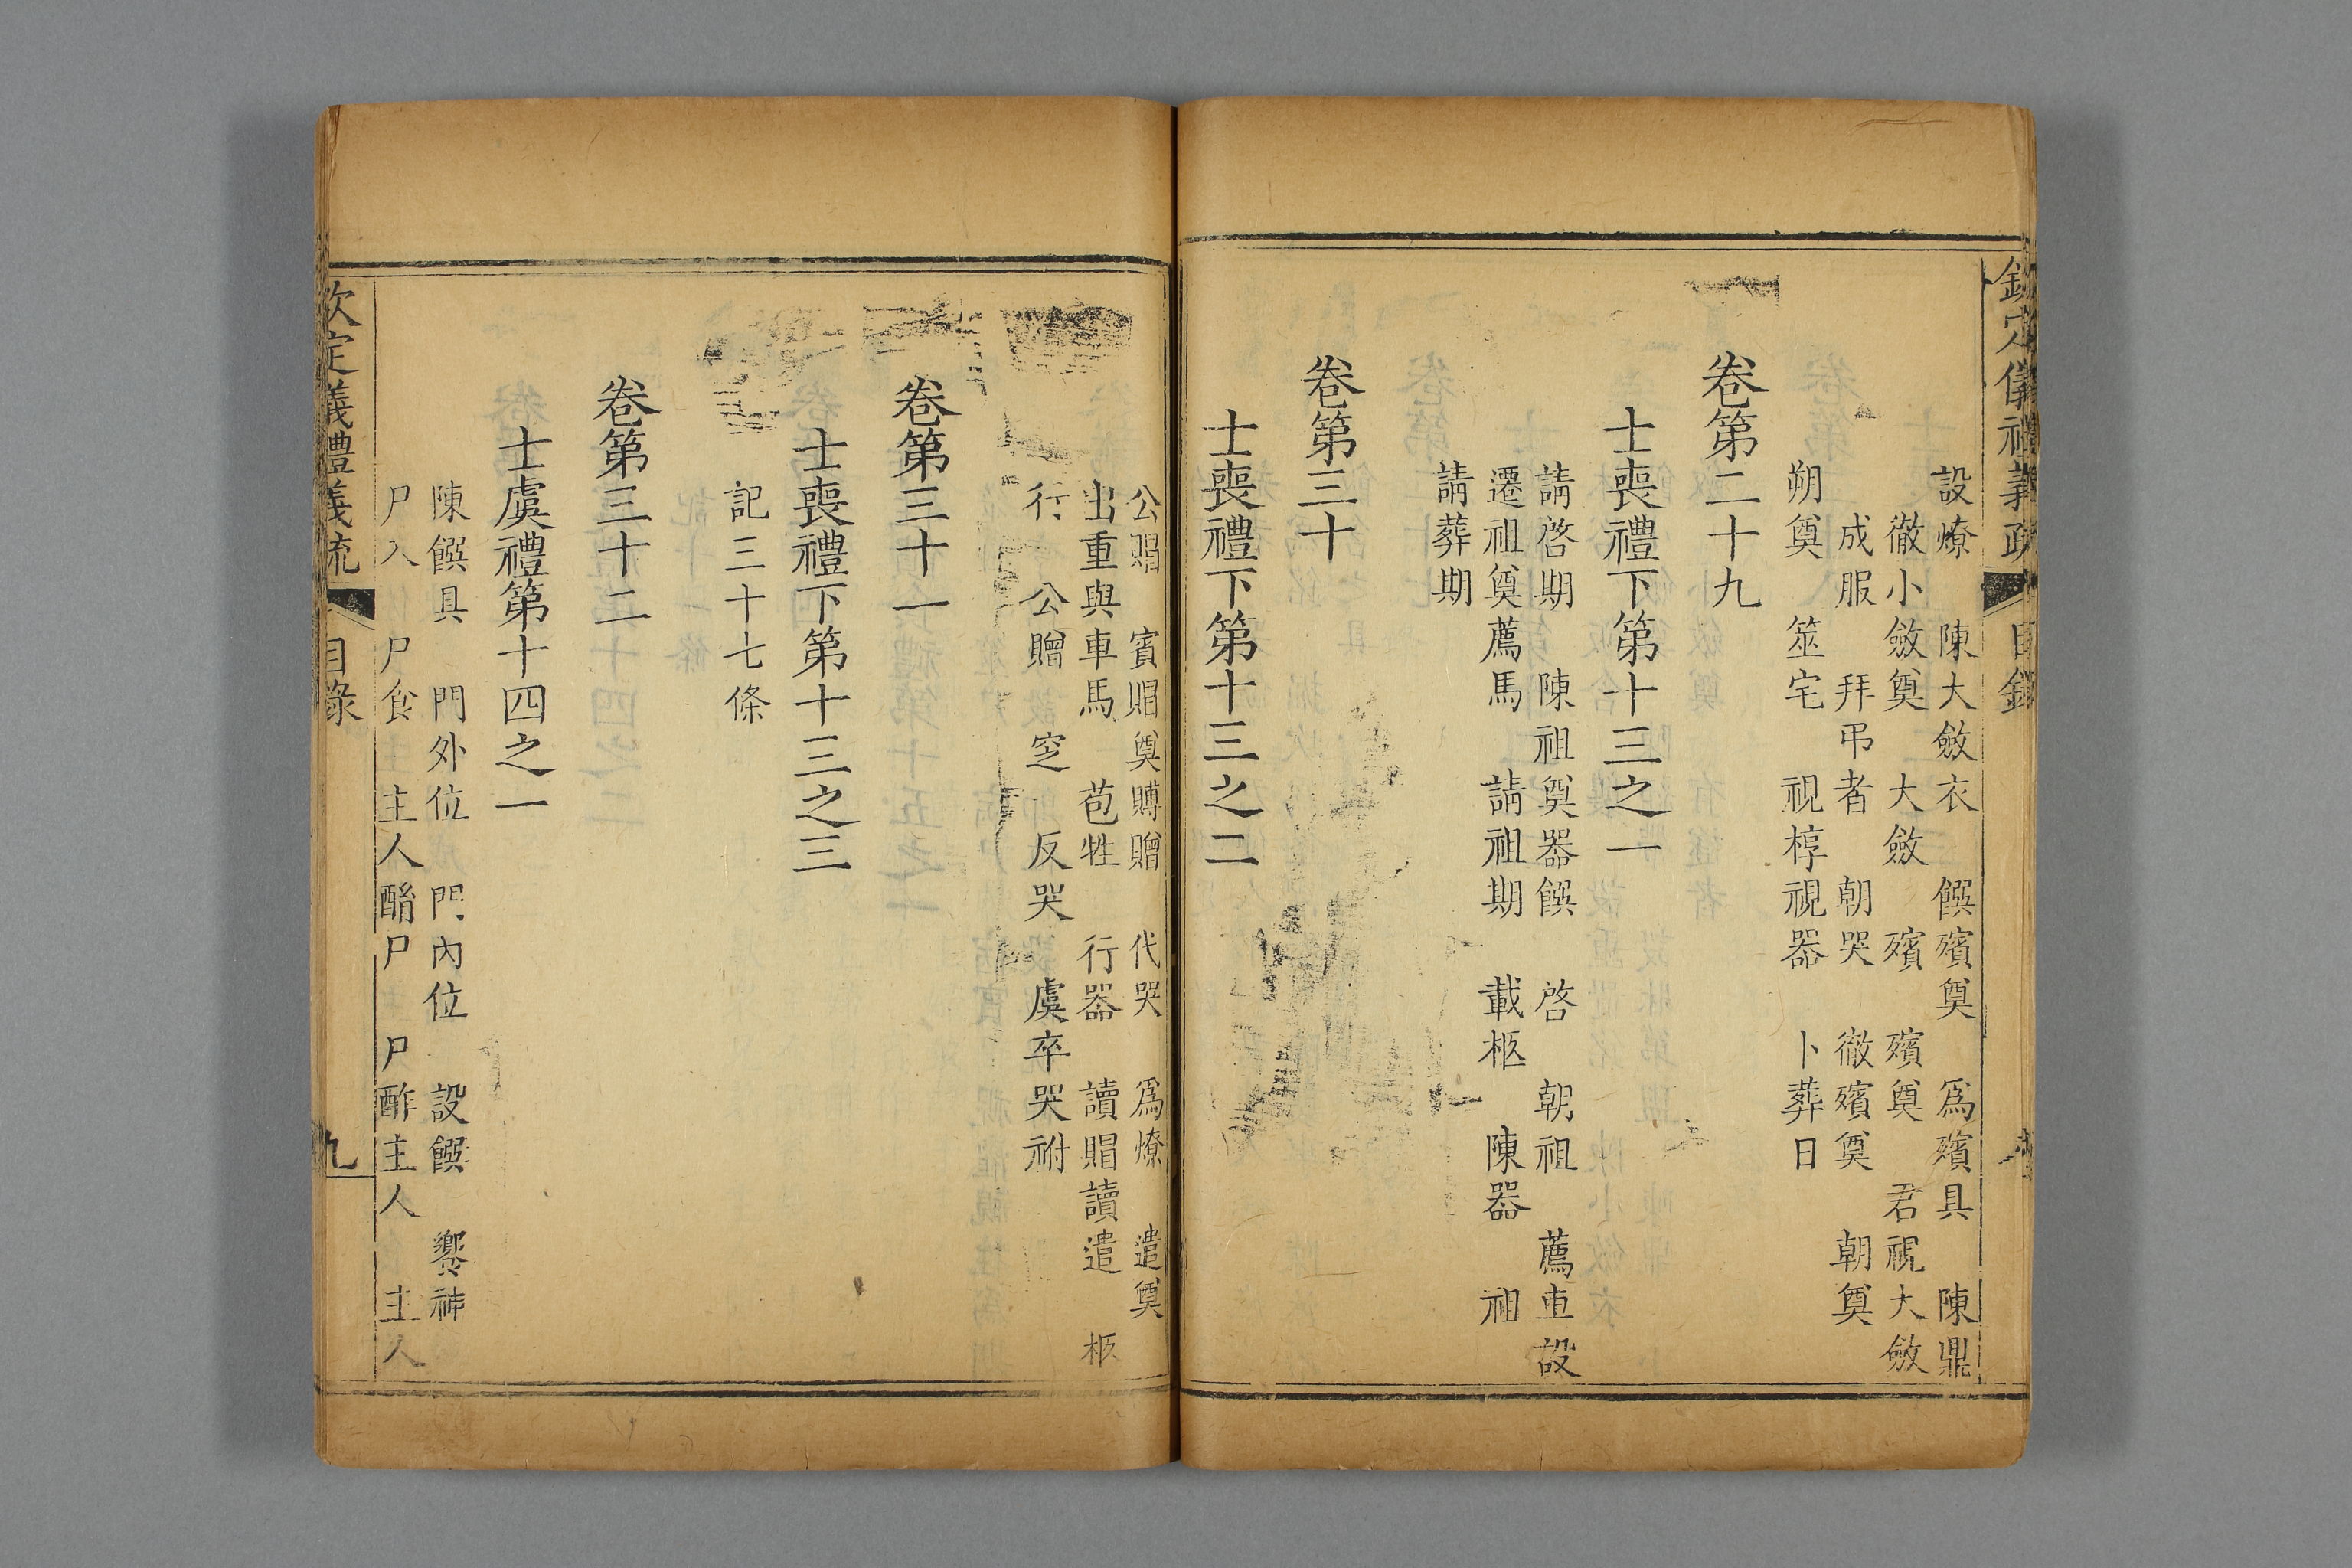 欽定儀禮義疏 目錄
設燎 陳大斂衣 饌殯奠 爲殯具 陳鼎
徹小斂奠 大斂 殯 殯奠 君視大斂
成服 拜弔者 朝哭 徹殯奠 朝奠
朔奠 筮宅 視椁視器 卜葬日
卷第二十九
士喪禮下第十三之一
請啓期 陳祖奠器饌 啓 朝祖 薦車設
遷祖奠薦馬 請祖期 載柩 陳器 祖
請葬期
卷第三十
士喪禮下第十三之二
公賵 賓賵奠賻贈 代哭 爲燎 遣奠
出重與車馬 苞牲 行器 讀賵讀遣 柩
行 公贈 窆 反哭 虞卒哭祔
卷第三十一
士喪禮下第十三之三
記三十七條
卷第三十二
士虞禮第十四之一
陳饌具 門外位 門內位 設饌 饗神
尸入 尸食 主人酳尸 尸酢主人 主人
欽定義禮義疏 目錄 九